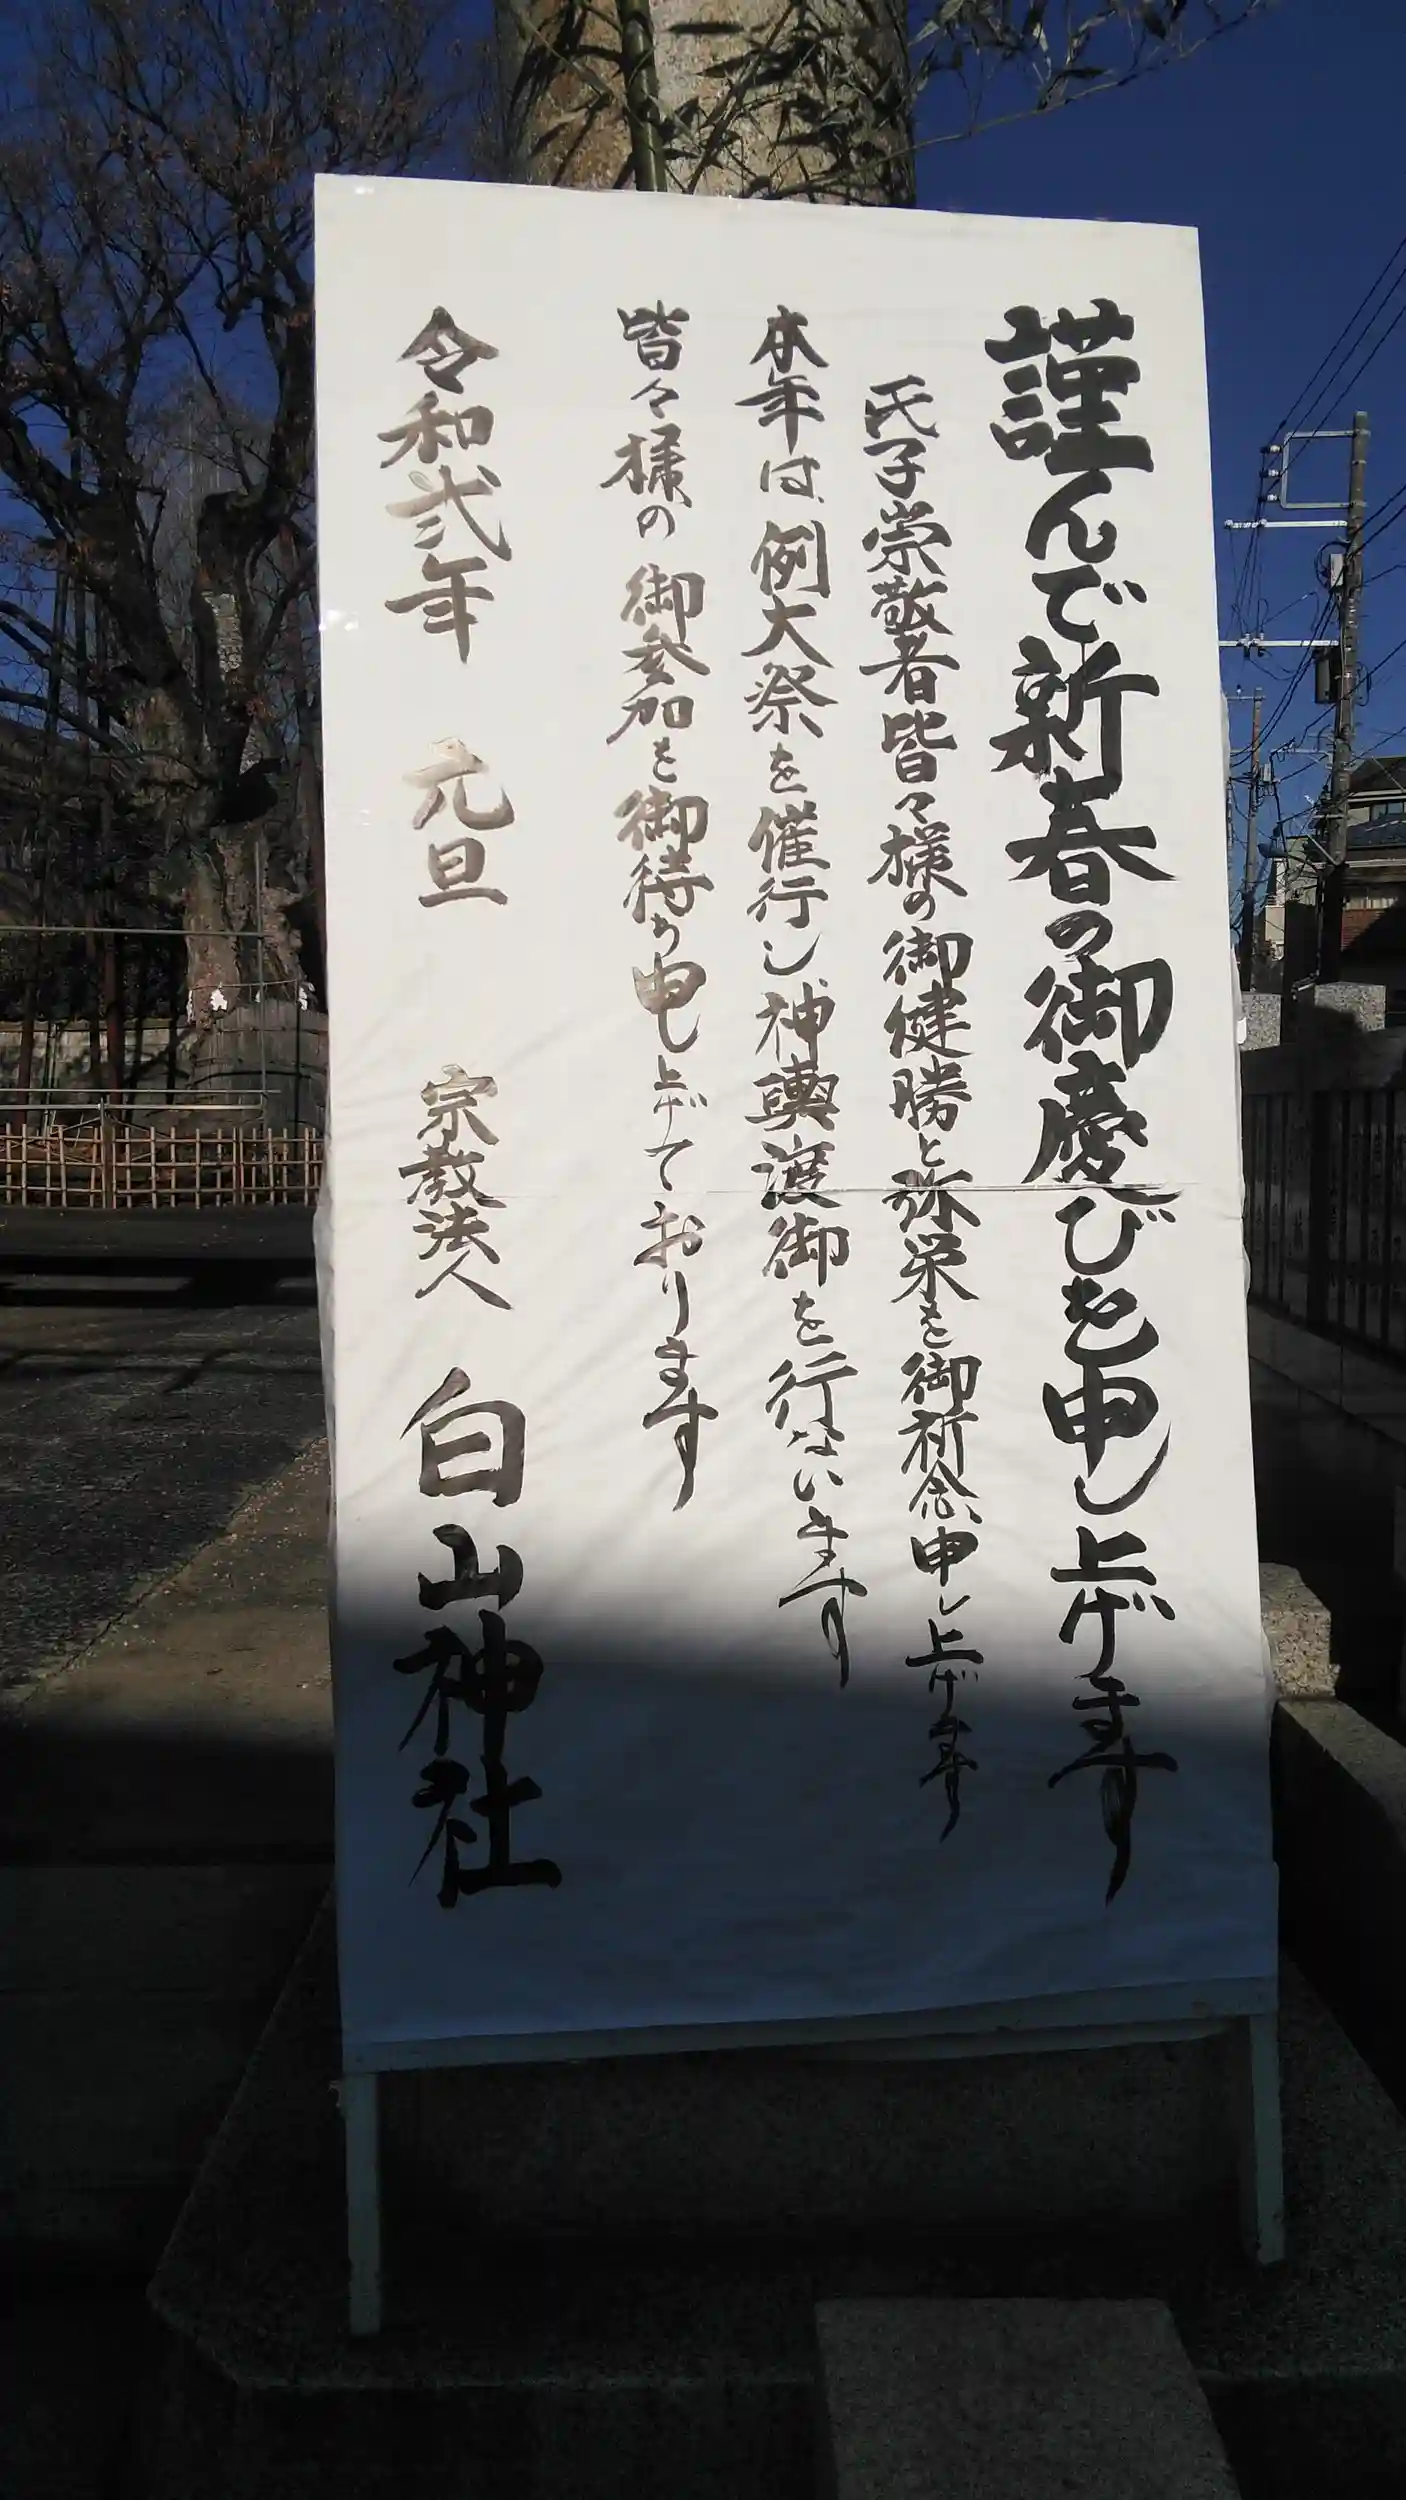 謹んで新春の御慶びを申し上げます
氏子崇敬者皆々様の御健勝と弥栄を御祈念申し上げます
本年は、例大祭を催行し、神輿渡御を行ないます
皆々様の御参加を御待ち申し上げております
令和弐年 元旦 宗教法人 白山神社